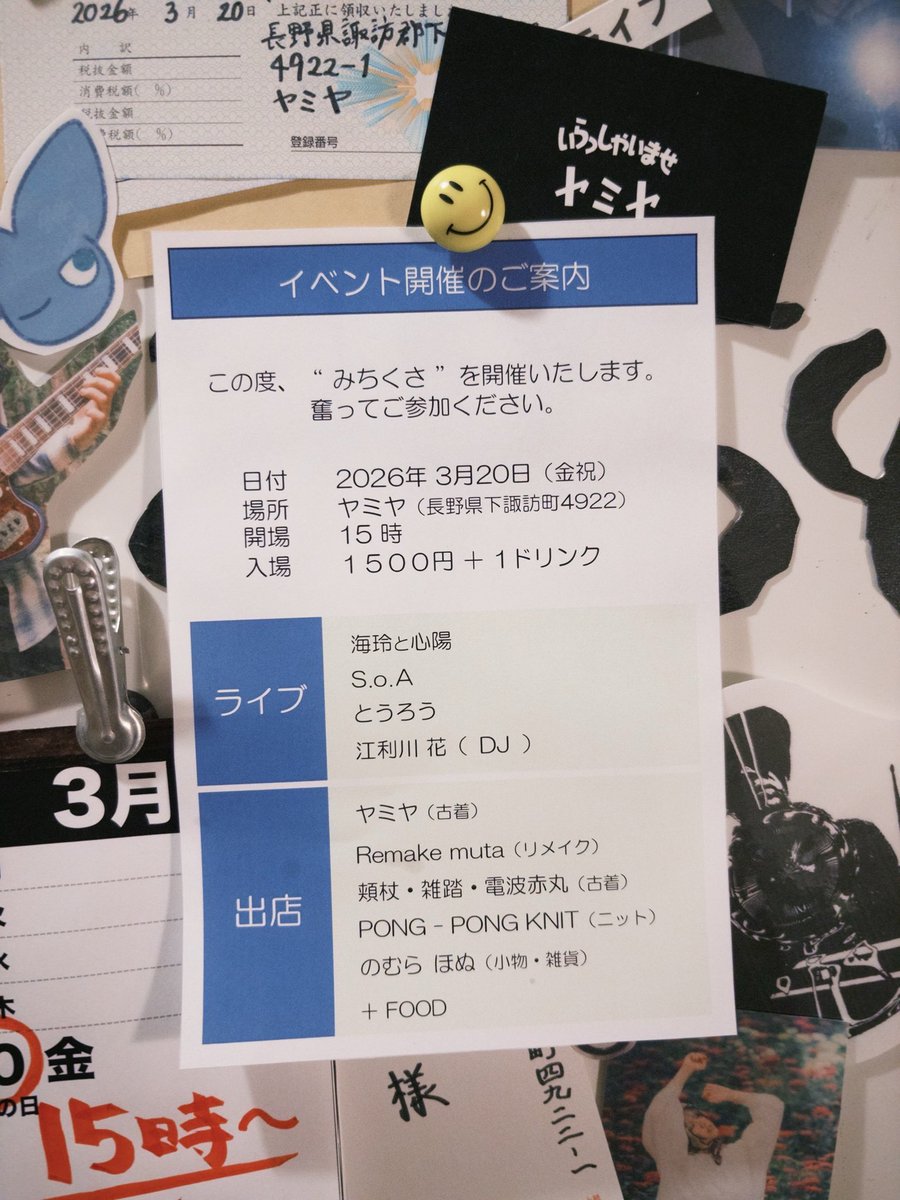 2026年 3月 20日 上記正に領収いたしまし
内 訳
税抜金額
消費税額( %)
税抜金額
費税額( %)
長野県諏訪郡下
4922-1
ヤミヤ
登録番号
ライブ
いらっしゃいませ
ヤミヤ
イベント開催のご案内
この度、“ みちくさ ”を開催いたします。
奮ってご参加ください。
日付 2026年 3月20日（金祝）
場所 ヤミヤ（長野県下諏訪町4922）
開場 15 時
入場 1500円 + 1ドリンク
ライブ
海玲と心陽
S.o.A
とうろう
江利川 花（ DJ ）
出店
ヤミヤ（古着）
Remake muta（リメイク）
頬杖・雑踏・電波赤丸（古着）
PONG - PONG KNIT（ニット）
のむら ほぬ（小物・雑貨）
+ FOOD
3月
水
木
0 金
の日
15時〜
様
町四九二二-一